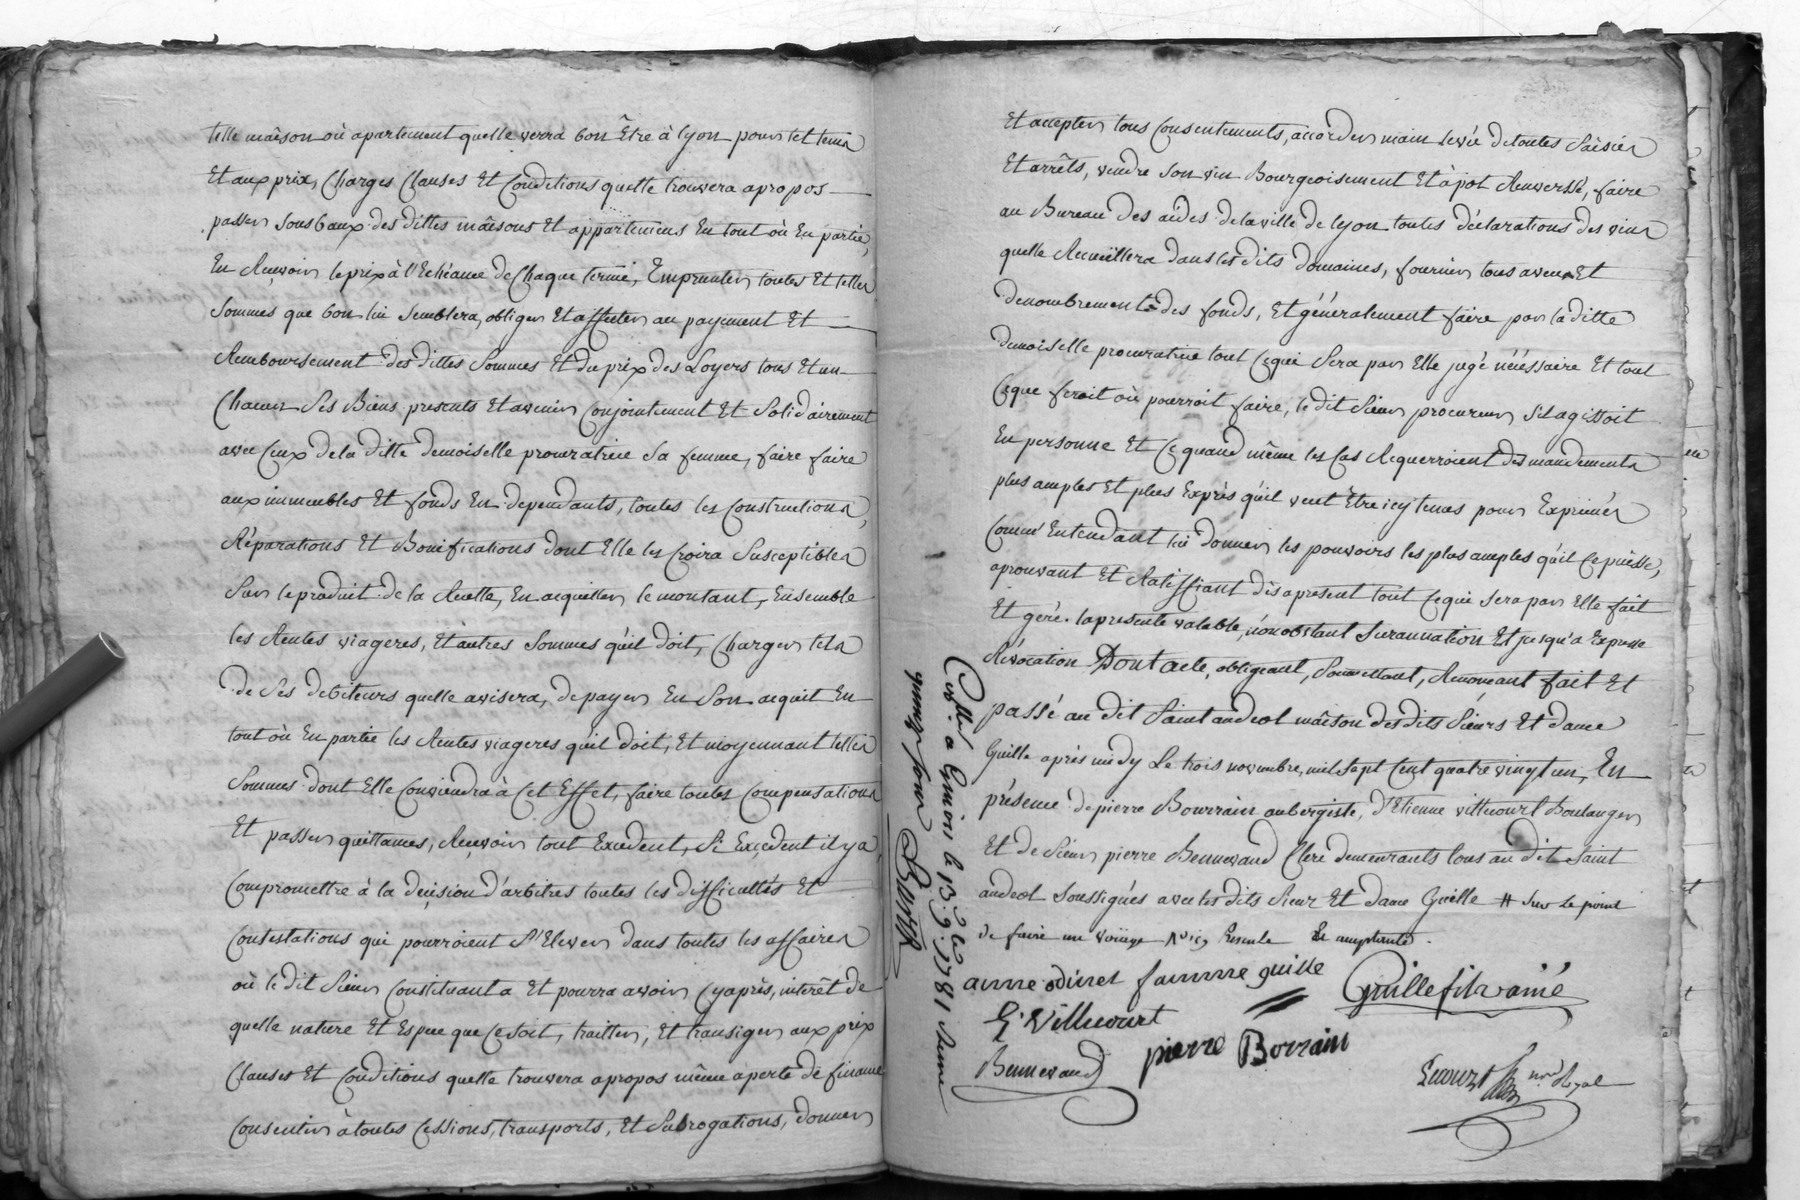 telle maison où apartement quelle verra bon Être à lyon pour tel tems
Et aux prix, Charges Clauses Et Conditions quelle trouvera apropos
passer sous baux des dittes maisons Et appartemens En tout où En partie,
En Recevoir le prix à l'Echéance de Chaque terme, Emprunter toutes Et telles
Sommes que bon lui Semblera, obliger Et affecter au payement Et
Remboursement des dittes Sommes Et du prix des Loyers tous Et un
Chacun Ses Biens presents Et avenir Conjointement Et Solidairement
avec Ceux de la ditte demoiselle procuratrice Sa femme, faire faire
aux immeubles Et fonds En dependants, toutes les Constructions,
Réparations Et Bonifications dont Elle les Croira Susceptibles
Sur le produit de la Recette, En acquitter le montant, Ensemble
les Rentes viageres, Et autres Sommes qu'il doit, Charger tels
de Ses debiteurs quelle avisera, de payer En Son acquit En
tout où En partie les Rentes viageres qu'il doit, Et moyennant telles
Sommes dont Elle Conviendra à Cet Effet, faire toutes Compensations
Et passer quittances, Recevoir tout Excedent, Si Excedent il y a,
Compromettre à la decision d'arbitres toutes les difficultés Et
Contestations qui pourroient S'Elever dans toutes les affaires
où le dit Sieur Constituant a Et pourra avoir Cyaprès, interêt de
quelle nature Et Espece que Ce soit, traitter, Et transiger aux prix
Clauses Et Conditions quelle trouvera apropos même aperte de finance
Consentir à toutes Cessions, transports, Et Subrogations, donner
Et accepter tous Consentements, accorder main Levée de toutes Saisies
Et arrêts, vendre Son vin Bourgeoisement Et à pot Renversé, faire
au Bureau des aides de la ville de lyon toutes déclarations des vins
quelle Recueillera dans les dits domaines, fournir tous aveux Et
denombrements des fonds, Et généralement faire par la ditte
demoiselle procuratrice tout Ce qui Sera par Elle jugé nécessaire Et tout
Ce que feroit où pourroit faire, le dit Sieur procureur S'il agissoit
En personne Et Ce quand même les Cas Requerroient des mandements
plus amples Et plus Exprès qu'il veut Être icy tenus pour Exprimés
Comme Entendant lui donner les pouvoirs les plus amples qu'il Ce puisse,
aprouvant Et Ratiffiant dès apresent tout Ce qui Sera par Elle fait
Et geré. la presente valable, nonobstant Surannation Et jusqu'a Expresse
Révocation Dont acte, obligeant, Soumettant, Renonçant fait Et
passé au dit Saint andeol maison des dits Sieurs Et dame
Guille après midy Le trois novembre, mil Sept Cent quatre vingt un, En
présence de pierre Bourrain aubergiste, d'Etienne villecourt Boulanger
Et de Sieur pierre Bennevaud Clerc demeurants tous au dit Saint
andeol Soussignés avec les dits Sieur Et dame Guille # Sur Le point
de faire un voiage
anne odinet famme guille
Guille fils ainé
E. Villecourt
pierre Borrain
Bennevaud
nore Royal
Collé a le 13. 9.bre 1781
quinze sous